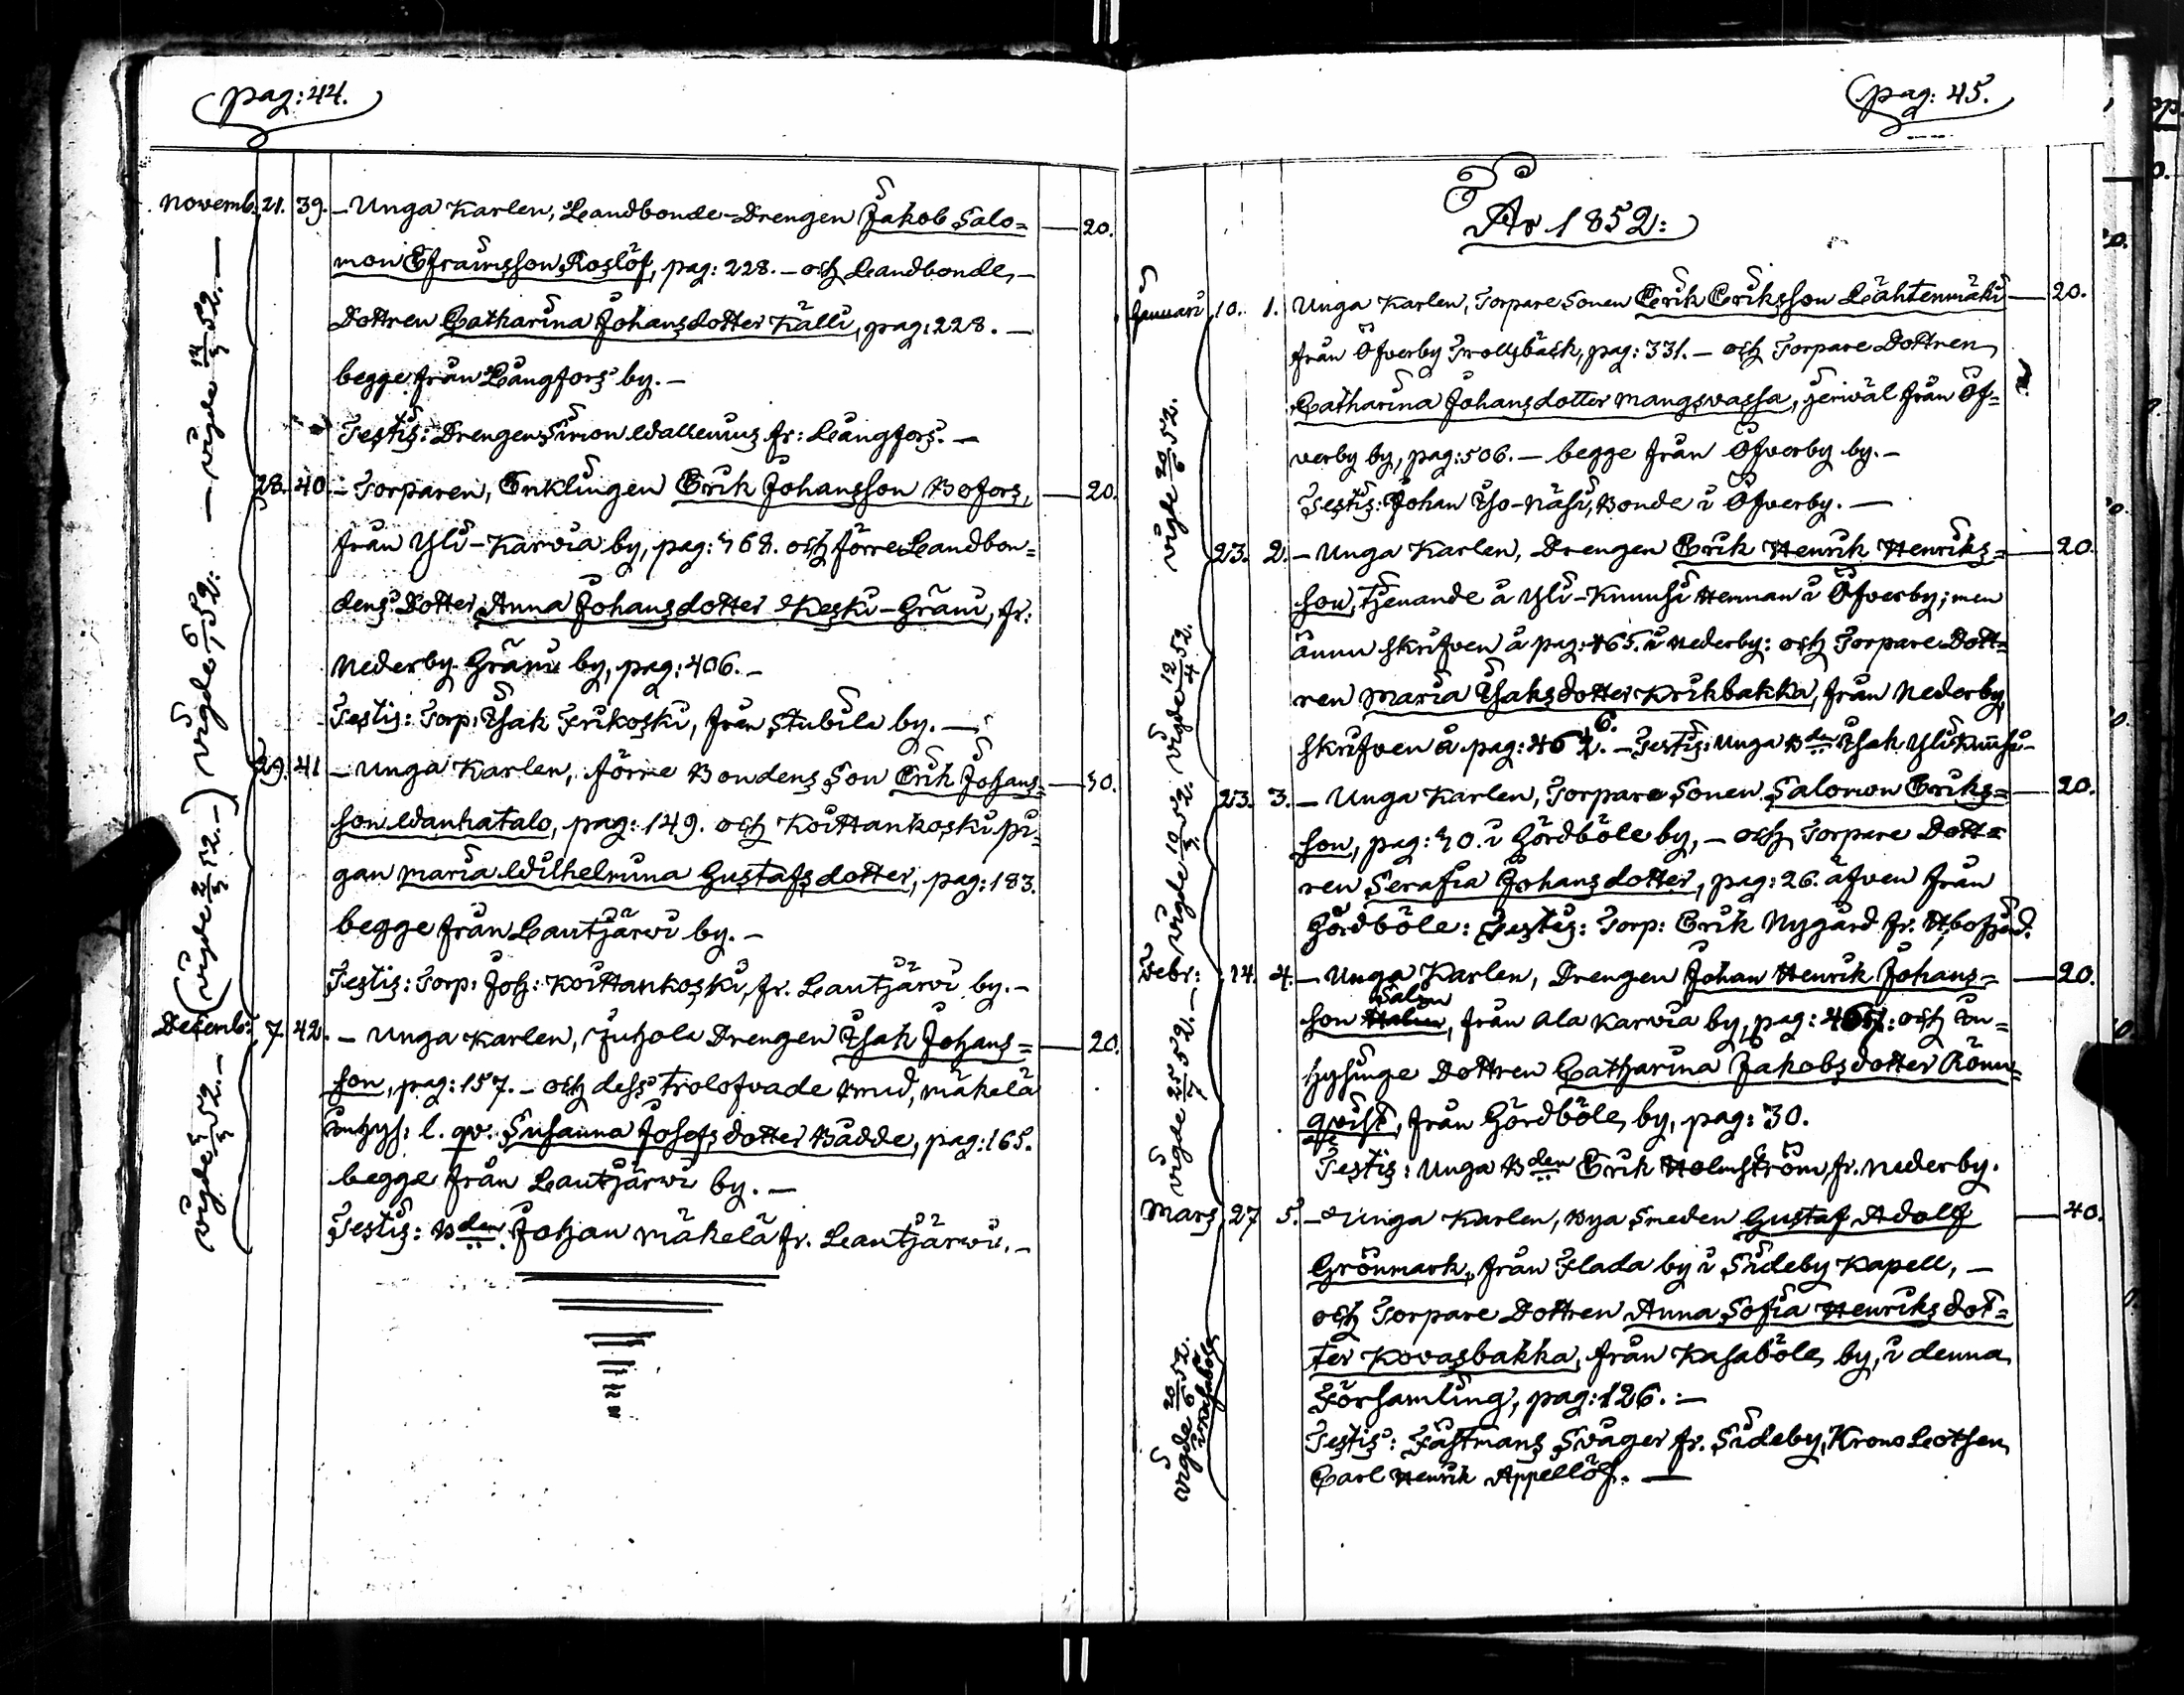 pag: 44.
Novemb. 21. 39. – Unga Karlen, Landbonde-Drengen Jakob Salo= — 20.
mon Efraimsson Roslöf, pag: 228. – och Landbonde –
Dottren Catharina Johansdotter Källi, pag: 228. –
begge från Långfors by. –
Testis: Drengen Simon Wallenius fr: Långfors. –
28. 40. – Torparen, Enklingen Erik Johansson Bofors, — 20.
från Yli-Karvia by, pag: 768. och förre Landbon=
dens Dotter Anna Johansdotter Keski-Gräni, fr:
Nederby Gräni by, pag: 406. –
Testis: Torp: Isak Frikoski, från Stubila by. —
29. 41 – Unga Karlen, förre Bondens Son Erik Johans= — 30.
son Wanhatalo, pag: 149. och Koittankoski pi=
gan Maria Wilhelmina Gustafsdotter, pag: 183.
begge från Lautjärwi by. –
Testis: Torp: Joh: Koittankoski, fr. Lautjärvi by. –
Decemb: 7. 42. – Unga Karlen, Juhola Drengen Isak Johans= — 20.
son, pag: 157. – och dess trolofvade Brud, Mäkelä
Inhys: l. qv. Susanna Josefsdotter Bådde, pag: 165.
begge från Lautjärwi by. –
Testis: Bden Johan Mäkelä fr. Lautjärwi. –
– vigde 14/3 52. –
vigde 6/1 52.
(vigde 2/3 52. –)
vigde 5/3 52. –
pag: 45.
År 1852:
Januari 10. 1. Unga Karlen, Torpare Sonen Erik Eriksson Lähtenmäki — 20.
från Öfverby Trollsbäck, pag: 331. – och Torpare Dottren
Catharina Johansdotter Mangsvassa, jemväl från Öf=
verby by, pag: 506. – begge från Öfverby by. –
Testis: Johan Iso-Näsi, Bonde i Öfverby. —
23. 2. – Unga Karlen, Drengen Erik Henrik Henriks= — 20.
son, tjenande å Yli-Knuusi Hemman i Öfverby; men
ännu skrifven å pag: 465. i Nederby: och Torpare Dott=
ren Maria Isaksdotter Krikbakka, från Nederby,
skrifven å pag: 466. – Testis: Unga Bden Isak Yli Knuusi –
23. 3. – Unga Karlen, Torpare Sonen Salomon Eriks= — 20.
son, pag: 30. i Gördböle by, – och Torpare Dott=
ren Serafia Johansdotter, pag: 26. äfven från
Gördböle: Testis: Torp: Erik Nygård fr.
Febr: 14. 4. – Unga Karlen, Drengen Johan Henrik Johans= — 20.
Salin
son Halin, från Ala Karvia by, pag: 467: och In=
hysinge Dottren Catharina Jakobsdotter Rönn=
qvist, från Gördböle by, pag: 30.
Testis: Unga Bden Erik Holmström, fr. Nederby.
Mars 27 5. – Unga Karlen, Bya Smeden Gustaf Adolf — 40.
Grönmark, från Flada by i Sideby Kapell, –
och Torpare Dottren Anna Sofia Henriksdot=
ter Kovasbakka, från Kasaböle by, i denna
Församling, pag: 126. : –
Testis: Fästmans Svåger fr. Sideby, Krono Lotsen
Carl Henrik Appellöf. —
vigde 20/6 52.
vigde 12/4 52.
vigde 10/5 52.
vigde 25/7 52. –
vigde 20/6 52.
i Kasaböle